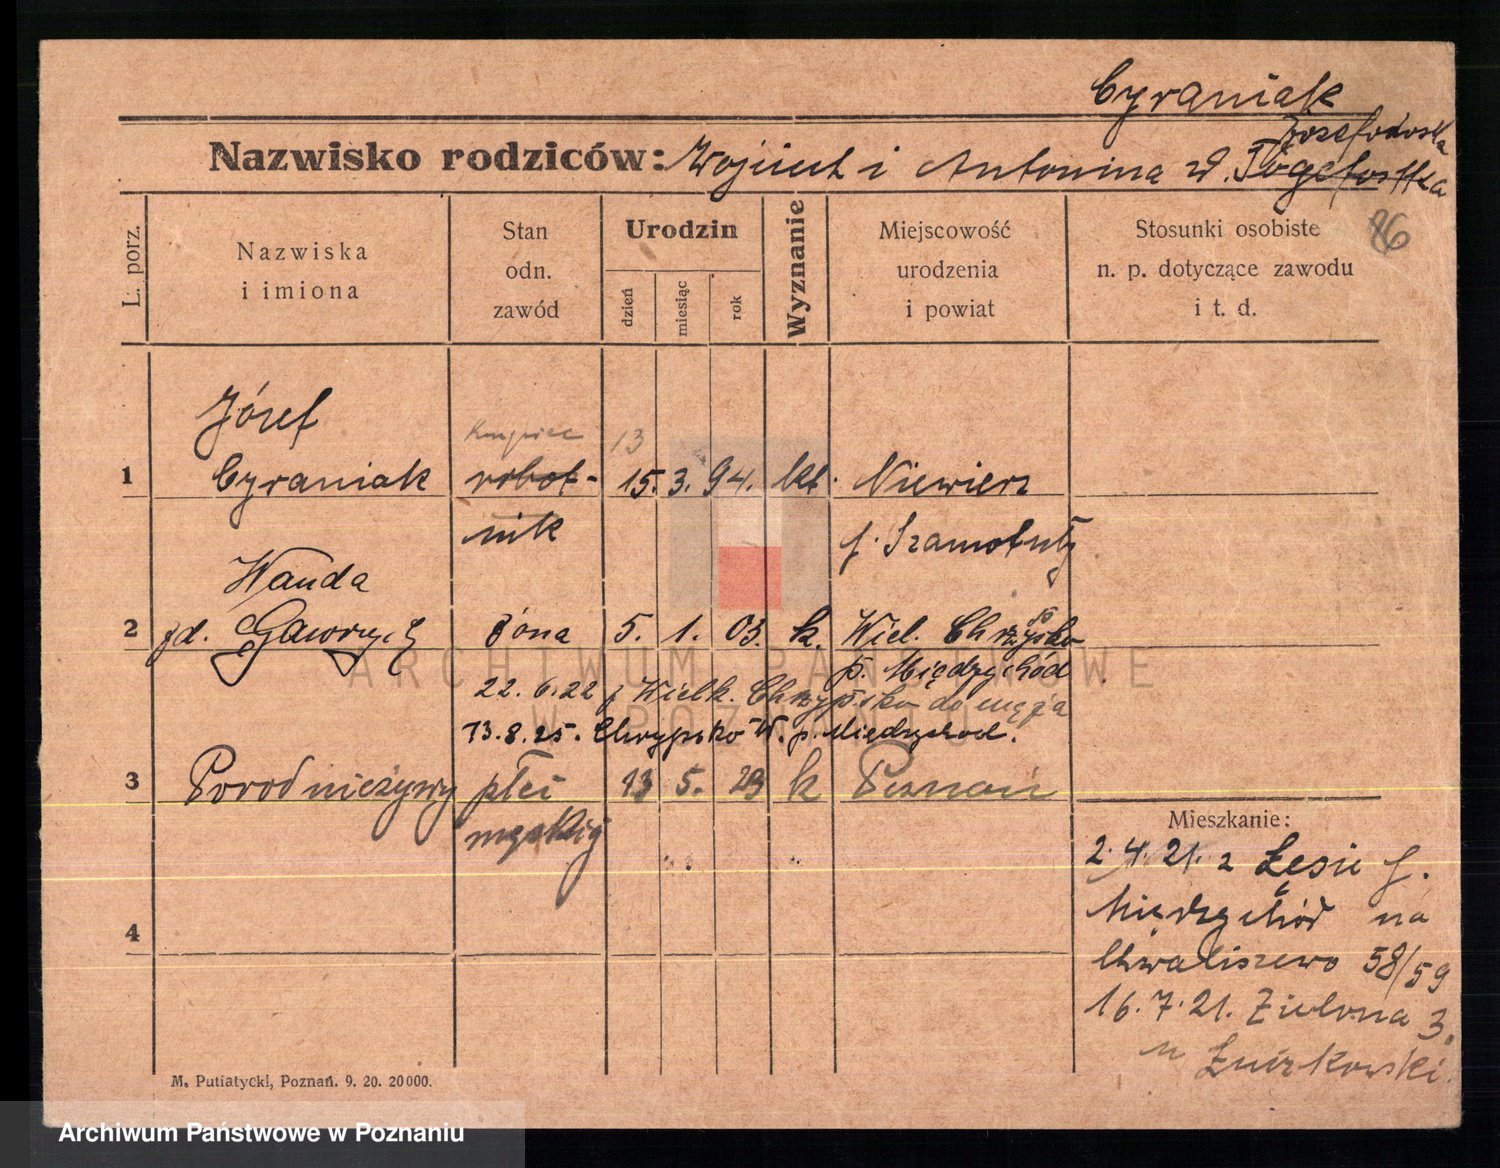 Cyraniak
Józefowska
Nazwisko rodziców: Wojciech i Antonina zd. Jozefostka
86
L. porz.
Nazwiska
i imiona
Stan
odn.
zawód
Urodzin
dzień
miesiąc
rok
Wyznanie
Miejscowość
urodzenia
i powiat
Stosunki osobiste
n. p. dotyczące zawodu
i t. d.
Józef
kupiec 13
1 Cyraniak robot- 15. 3. 94. kt. Niewierz
nik p. Szamotuły
Wanda
2 zd. Gawrych żona 5. 1. 03. k. Wiel. Chrzypsko
p. Międzychód
22.6.22 z Wielk. Chrzypska do męża
13.8.25. Chrzypsko W. p. Międzychod.
3 Poród nieżywy płci 13 5. 23 k Poznań
męskiej
Mieszkanie:
2.4.21. z Łesie p.
4 Międzychód na
Chwaliszewo 58/59
16.7.21. Zielona 3.
u Żurkowski.
M. Putiatycki, Poznań. 9. 20. 20000.
ARCHIWUM PAŃSTWOWE
W POZNANIU
Archiwum Państwowe w Poznaniu